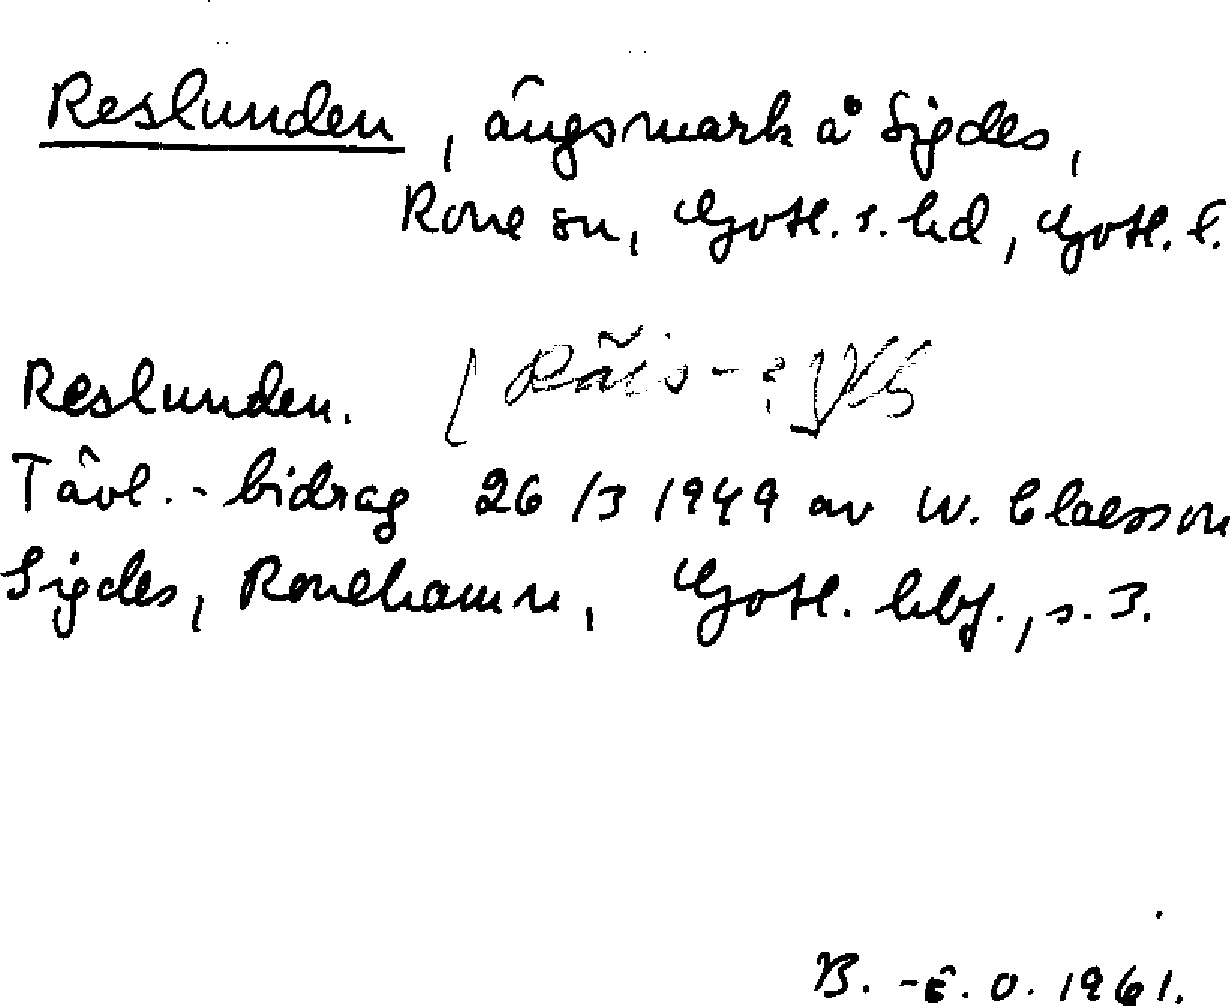 Reslunden, ängsmark å Sigdes,
Rone sn, Gotl. s. hd, Gotl. l.
Reslunden. [Räis-?]
Tävl.-bidrag 26/3 1949 av W. Claesson
Sigdes, Ronehamn, Gotl. hbf., s. 3.
B.-E. O. 1961.